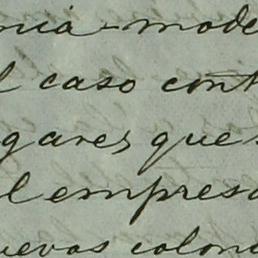 ncia mode
l caso cont
gares que
l empresa
uevos colon